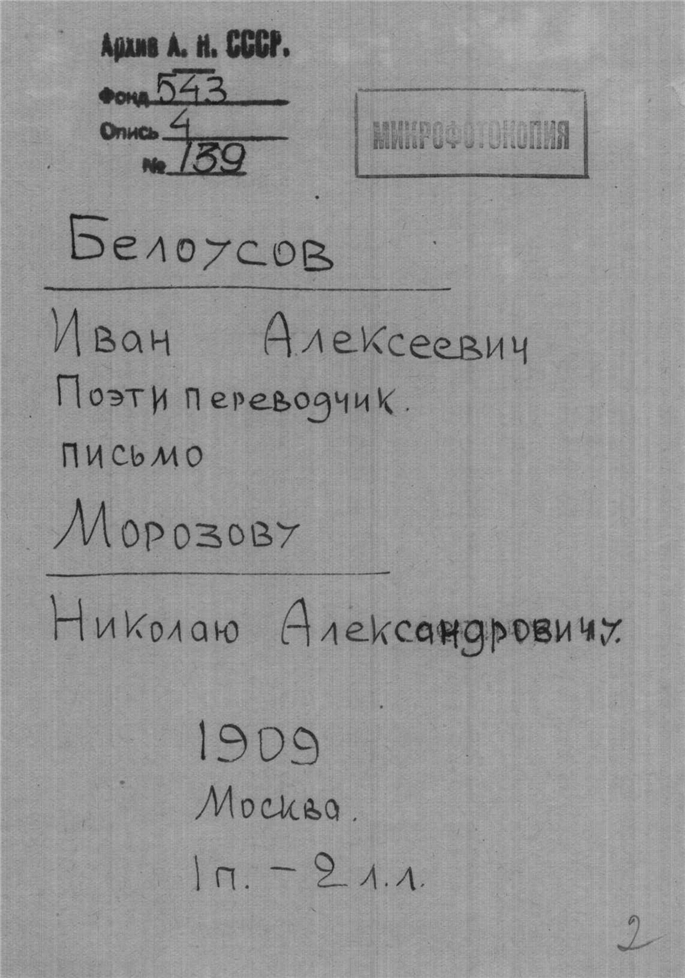 Архив А. Н. СССР.
Фонд 543
Опись 4
№ 139
МИКРОФОТОКОПИЯ
Белоусов
Иван Алексеевич
Поэт и переводчик.
письмо
Морозову
Николаю Александровичу.
1909
Москва.
1 п. – 2 л.л.
2